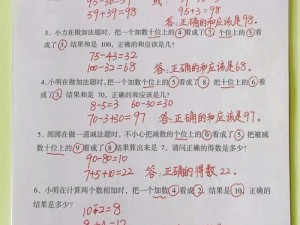 59+39=98 95+3=98
答:正确的和应该是98.
3、小力在做加法题时,把一个加数十位上的④看成了⑦,个位上的⑤
看成③ 结果和是 100,正确的和应该是几?
75-43=32
100-32=68 答:正确的和应该是68.
4.小明在做加法题时,把一个数个位上的⑤看成了⑧,把十位上的⑥
看成了③ 结果和是 70,正确的和应该是几?
8-5=3 60-30=30
70-3+30=97 答:正确的和应该是97.
5、圆圆在做一道减法题时,不小心把减数个位上的⑥看成了⑤,把被减
数十位上的⑨看成了⑧结果算出来是 7,请问正确的得数是多少?
90-80=10
答:正确的得数 22.
6、小明在计算两个数相加时,把一个加数④看成②,结果是⑩,正确的
结果是多少?
10-2=8
8+4=12